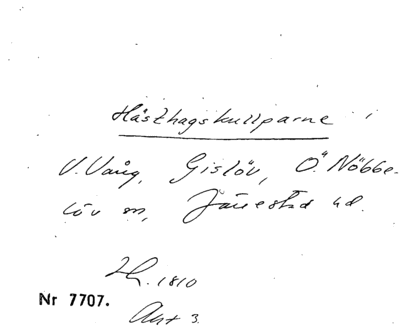 Hästhagskullparne i
V. Vång, Gislöv, Ö. Nöbbe-
löv m, Järrestad hd.
1810
Nr 7707.
Akt 3.